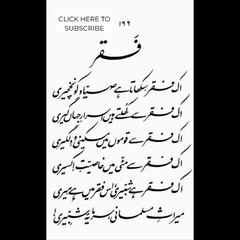 CLICK HERE TO
SUBSCRIBE
۱۶۶
فقر
اک فقر سکھاتا ہے صیّاد کو نخچیری
اک فقر سے کھلتے ہیں اسرارِ جہاں گیری
اک فقر سے قوموں میں مسکینی و دلگیری
اک فقر سے مٹّی میں خاصیّتِ اکسیری
اک فقر ہے شبّیری اس فقر میں ہے میری
میراثِ مسلمانی سرمایۂ شبّیری